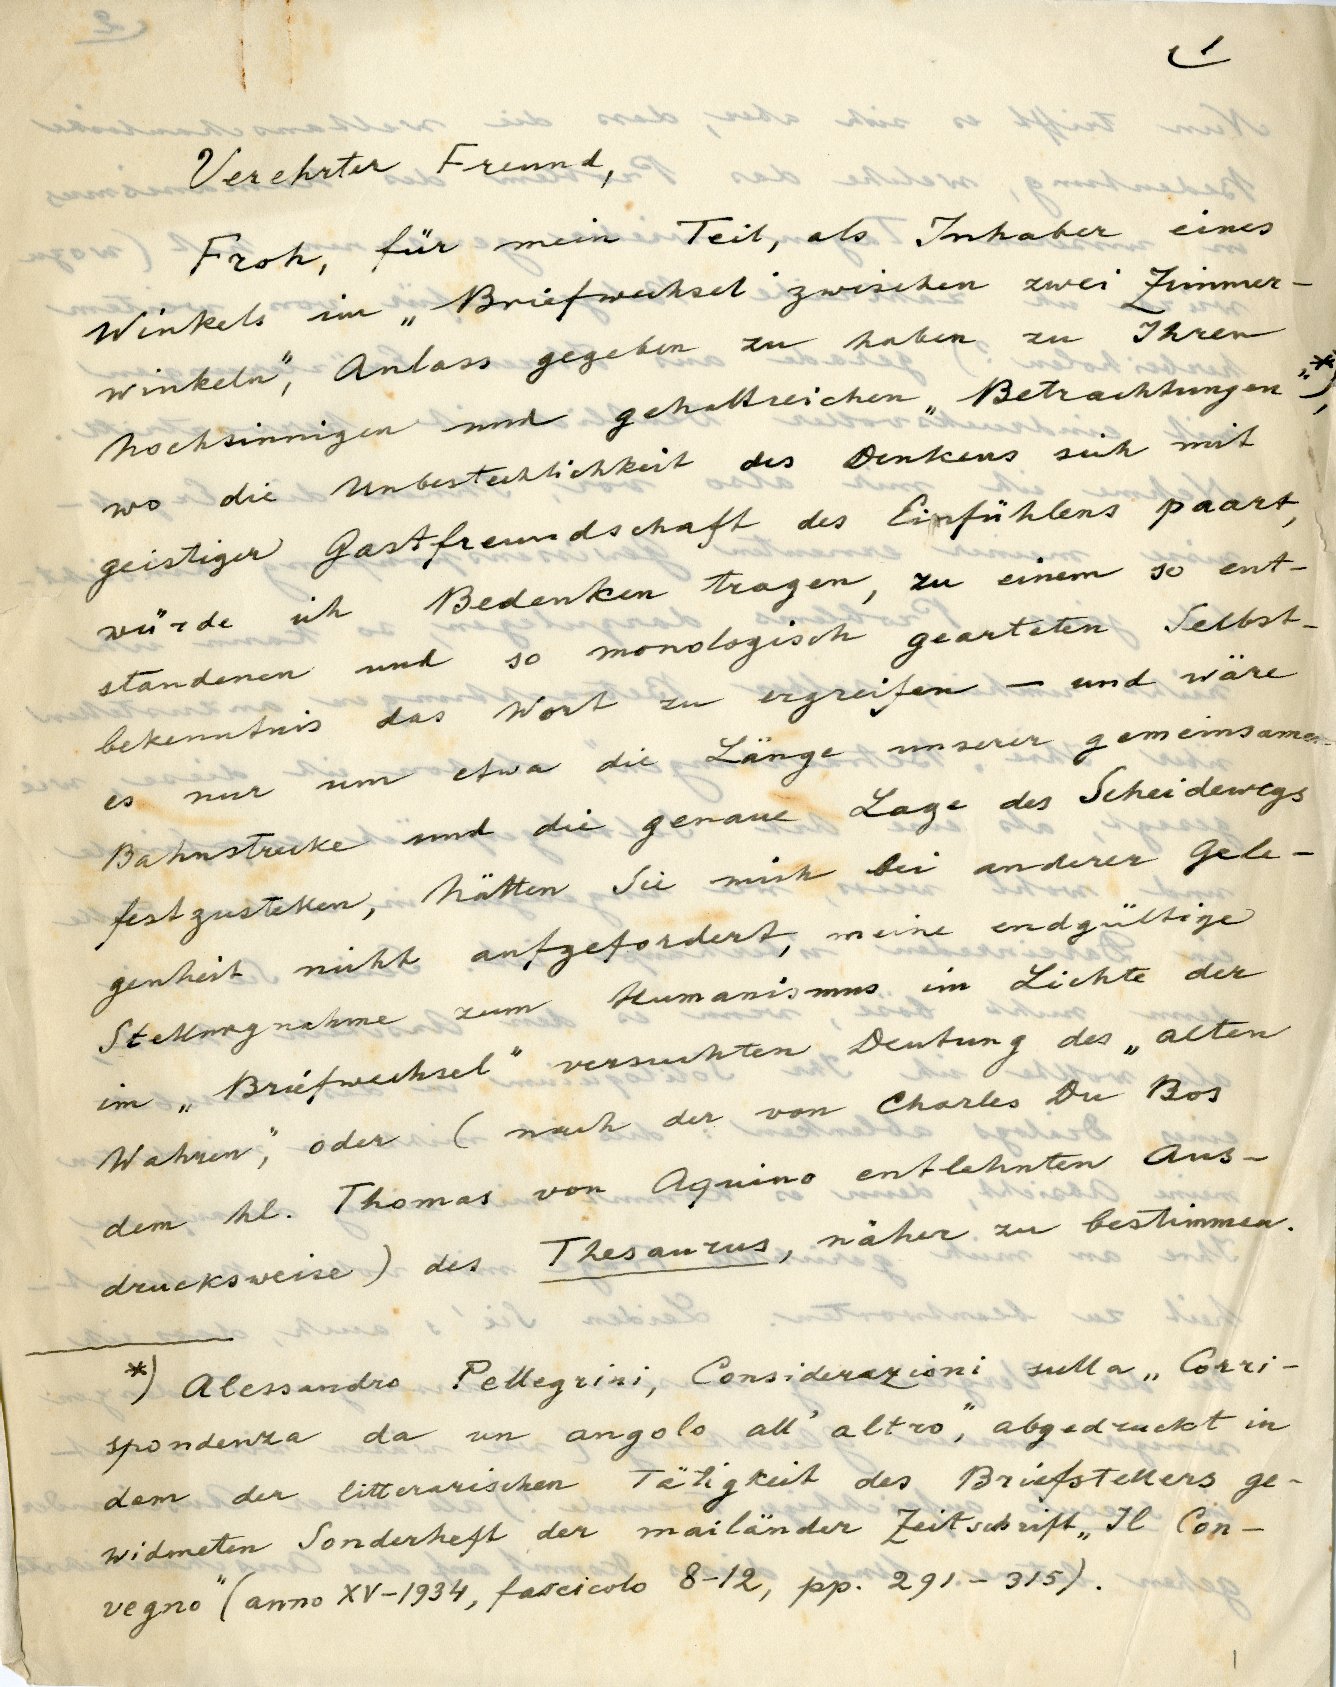 1
Verehrter Freund,
Froh, für mein Teil, als Inhaber eines
Winkels im „Briefwechsel zwischen zwei Zimmer-
winkeln“, Anlass gegeben zu haben zu Ihren
hochsinnigen und gehaltreichen „Betrachtungen“*),
wo die Unbestechlichkeit des Denkens sich mit
geistiger Gastfreundschaft des Einfühlens paart,
würde ich Bedenken tragen, zu einem so ent-
standenen und so monologisch gearteten Selbst-
bekenntnis das Wort zu ergreifen — und wäre
es nur um etwa die Länge unserer gemeinsamen
Bahnstrecke und die genaue Lage des Scheidewegs
festzustellen, hätten Sie mich bei anderer Gele-
genheit nicht aufgefordert, meine endgültige
Stellungnahme zum Humanismus im Lichte der
im „Briefwechsel“ versuchten Deutung des „alten
Wahren“, oder (nach der von Charles Du Bos
dem hl. Thomas von Aquino entlehnten Aus-
drucksweise) des Thesaurus, näher zu bestimmen.
*) Alessandro Pellegrini, Considerazioni sulla „Corri-
spondenza da un angolo all'altro“, abgedruckt in
dem der litterarischen Tätigkeit des Briefstellers ge-
widmeten Sonderheft der mailänder Zeitschrift „Il Con-
vegno“ (anno XV-1934, fascicolo 8-12, pp. 291-315).